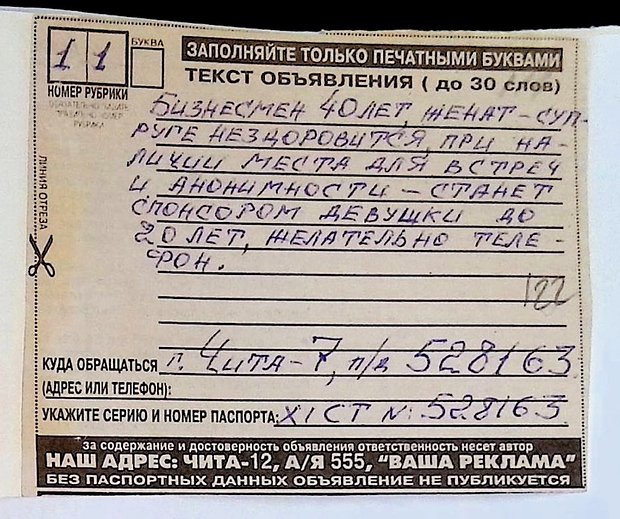 11
БУКВА
НОМЕР РУБРИКИ
ОБЯЗАТЕЛЬНО
НОМЕР
РУБРИКИ
ЛИНИЯ ОТРЕЗА
ЗАПОЛНЯЙТЕ ТОЛЬКО ПЕЧАТНЫМИ БУКВАМИ
ТЕКСТ ОБЪЯВЛЕНИЯ ( до 30 слов)
БИЗНЕСМЕН 40 ЛЕТ, ЖЕНАТ – СУП-
РУГЕ НЕЗДОРОВИТСЯ, ПРИ НА-
ЛИЧИИ МЕСТА ДЛЯ ВСТРЕЧ
И АНОНИМНОСТИ – СТАНЕТ
СПОНСОРОМ ДЕВУШКИ ДО
20 ЛЕТ, ЖЕЛАТЕЛЬНО ТЕЛЕ-
ФОН.
122
КУДА ОБРАЩАТЬСЯ г. Чита-7, п/д 528163
(АДРЕС ИЛИ ТЕЛЕФОН):
УКАЖИТЕ СЕРИЮ И НОМЕР ПАСПОРТА: XI СТ № 528163
за содержание и достоверность объявления ответственность несет автор
НАШ АДРЕС: ЧИТА-12, А/Я 555, "ВАША РЕКЛАМА"
БЕЗ ПАСПОРТНЫХ ДАННЫХ ОБЪЯВЛЕНИЕ НЕ ПУБЛИКУЕТСЯ